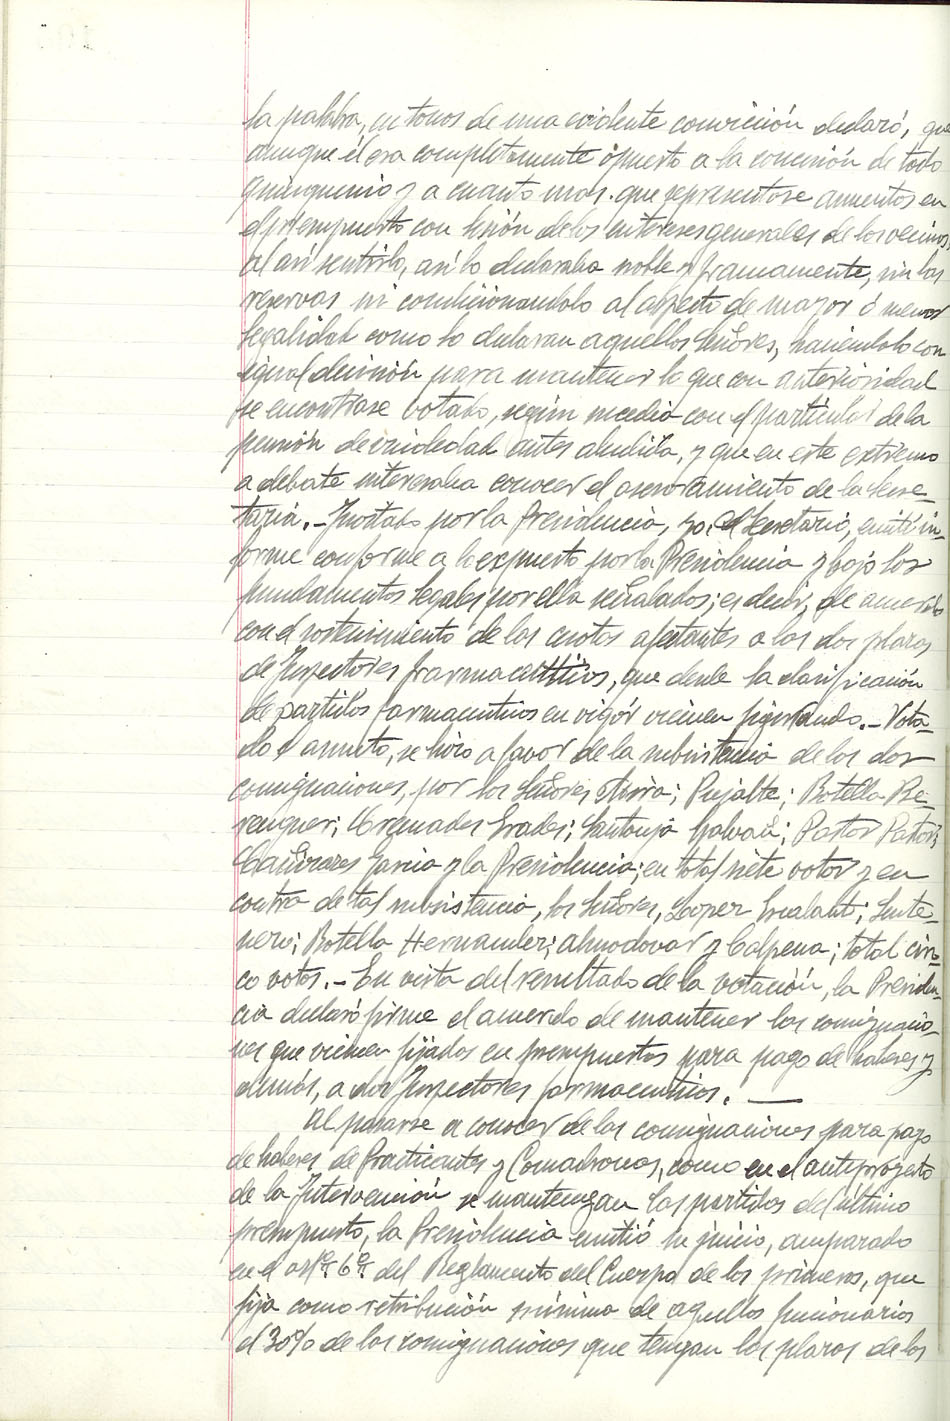 la palabra, en tonos de una evidente convicción declaró, que
aunque él era completamente opuesto a la concesión de todo
quinquenio y a cuanto mas. que representase aumentos en
el presupuesto con lesión de los intereses generales de los vecinos,
al así sentirlo, así lo declaraba noble y francamente, sin las
reservas ni condicionandolo al aspecto de mayor ó menor
legalidad como lo declaran aquellos Señores, haciendolo con
igual decisión para mantener lo que con anterioridad
se encontrase votado, según sucedia con el particular de la
pensión de viudedad antes aludida, y que en este extremo
a debate interesaba conocer el asesoramiento de la Secre-
taria.- Invitado por la Presidencia, yo, el Secretario, emití in-
forme conforme a lo expuesto por la Presidencia y bajo los
fundamentos legales por ella señalados; es decir, de acuerdo
con el sostenimiento de las cuotas afectantes a las dos plazas
de Inspectores farmaceuticos, que desde la clasificación
de partidos farmaceuticos en vigór vienen figurando.- Vota-
do el asunto, se hizo a favor de la subsistencia de las dos
consignaciones, por los Señores, Pujalte; Botella Be-
renguer; Granados Grades; Santonja Galvañ; Pastor Pastor;
Cañizares Garcia y la Presidencia; en total siete votos y en
contra de tal subsistencia, los Señores, Lopez; Sente-
nero; Botella Hernandez; Almodovar y Calpena; total cin-
co votos.- En vista del resultado de la votación, la Presiden-
cia declaró firme el acuerdo de mantener las consignacio-
nes que vienen fijadas en presupuestos para pago de haberes y
demás, a dos Inspectores farmaceuticos. —
Al pasarse a conocer de las consignaciones para pago
de haberes de Practicantes y Comadronas, como en el anteproyecto
de la Intervención se mantengan las partidas del último
presupuesto, la Presidencia emitió su juicio, amparado
en el artº. 6º. del Reglamento del Cuerpo de los primeros, que
fija como retribución minima de aquellos funcionarios
el 30% de las consignaciones que tengan las plazas de los